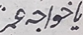 یا خواجه عمر